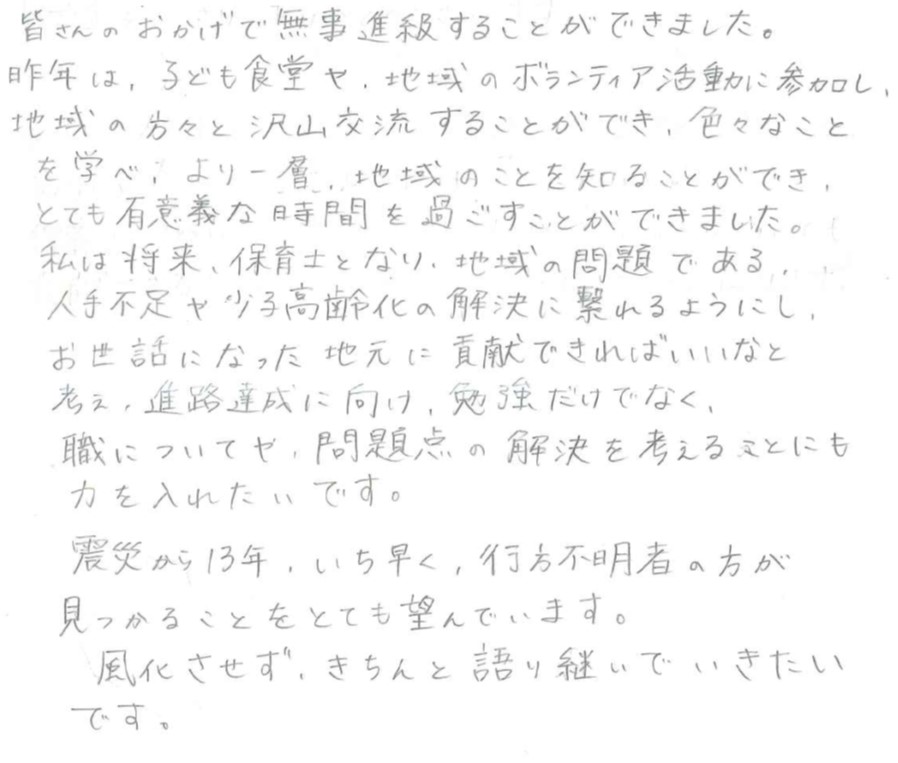 皆さんのおかげで無事進級することができました。
昨年は、子ども食堂や、地域のボランティア活動に参加し、
地域の方々と沢山交流することができ、色々なこと
を学べ、より一層、地域のことを知ることができ、
とても有意義な時間を過ごすことができました。
私は将来、保育士となり、地域の問題である、
人手不足や少子高齢化の解決に繋れるようにし、
お世話になった地元に貢献できればいいなと
考え、進路達成に向け、勉強だけでなく、
職についてや、問題点の解決を考えることにも
力を入れたいです。
震災から13年、いち早く、行方不明者の方が
見つかることをとても望んでいます。
風化させず、きちんと語り継いでいきたい
です。